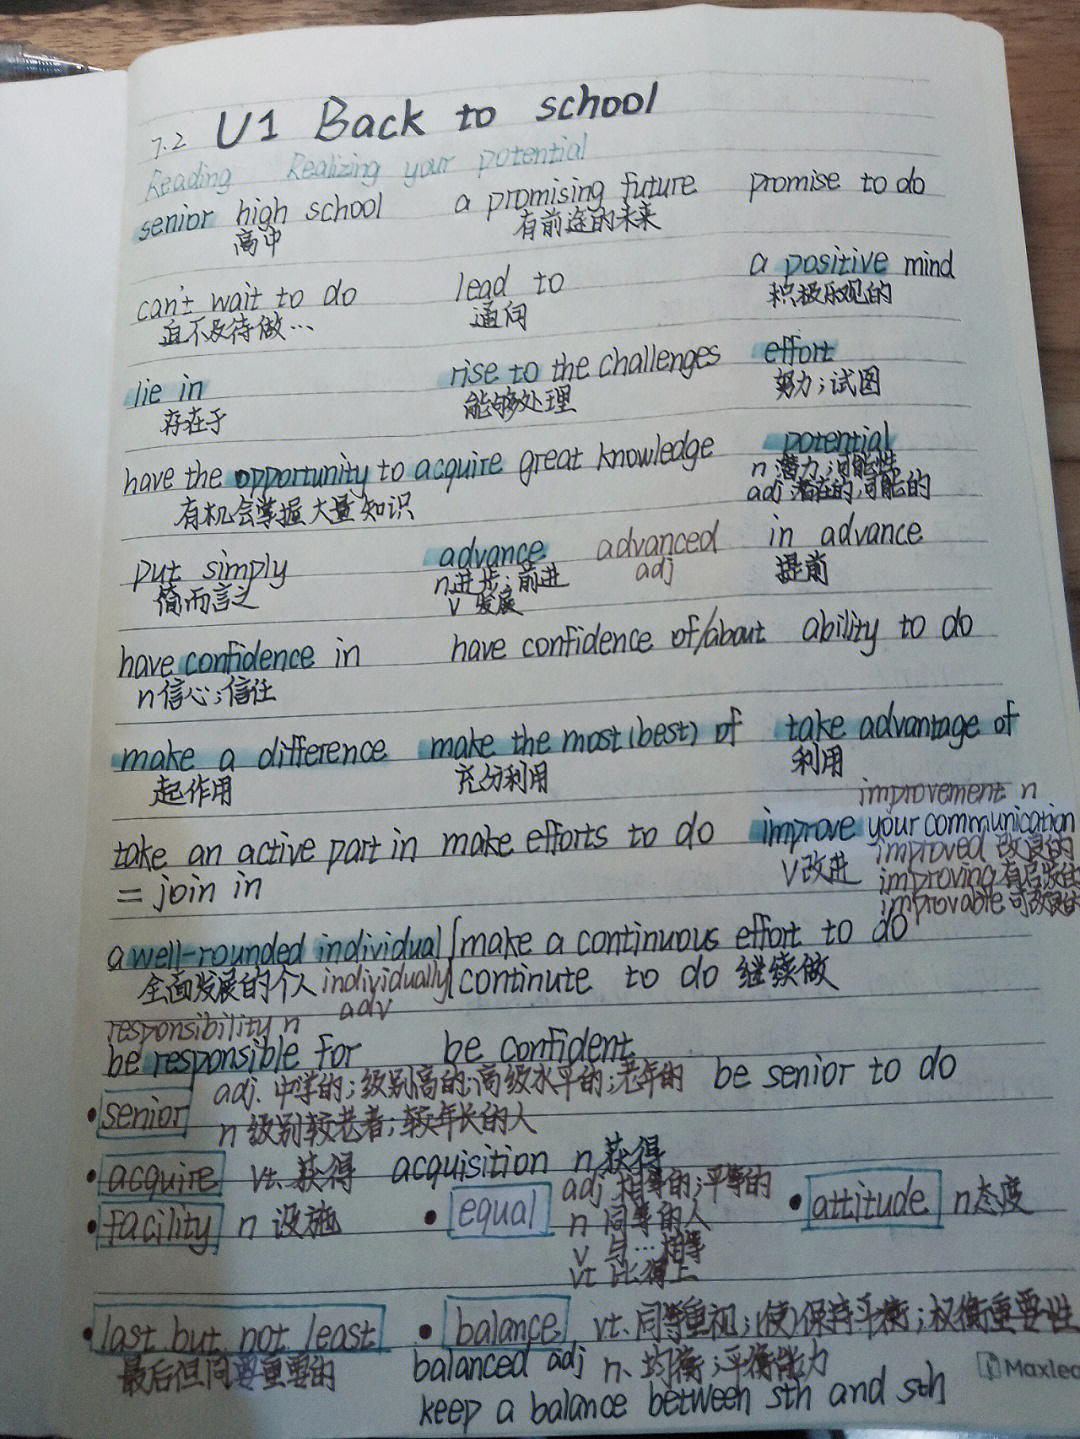 7.2 U1 Back to school
Reading Realizing your potential
senior high school a promising future promise to do
高中 有前途的未来
can't wait to do lead to a positive mind
迫不及待做… 通向 积极乐观的
lie in rise to the challenges effort
存在于 能够处理 努力;试图
have the opportunity to acquire great knowledge potential
有机会掌握大量知识 n 潜力;可能性
adj 潜在的,可能的
put simply advance advanced in advance
简而言之 n进步;前进 adj 提前
v 发展
have confidence in have confidence of/about ability to do
n信心;信任
make a difference make the most(best) of take advantage of
起作用 充分利用 利用
improvement n
take an active part in make efforts to do improve your communication
= join in v改进 improved 改良的
improving
improvable 可改良的
a well-rounded individual make a continuous effort to do
全面发展的个人 individually continute to do 继续做
responsibility n adv
be responsible for be confident
•senior adj. 中学的;级别高的;高级水平的;老年的 be senior to do
n 级别较老者;较年长的人
•acquire vt.获得 acquisition n 获得
•facility n 设施 •equal adj 相等的;平等的 •attitude n态度
n 同等的人
v 与…相等
vt 比得上
•last but not least •balance vt.同等重视;(使)保持平衡;权衡重要性
最后但同要重要的 balanced adj n.均衡;平衡能力
keep a balance between sth and sth
Maxlea